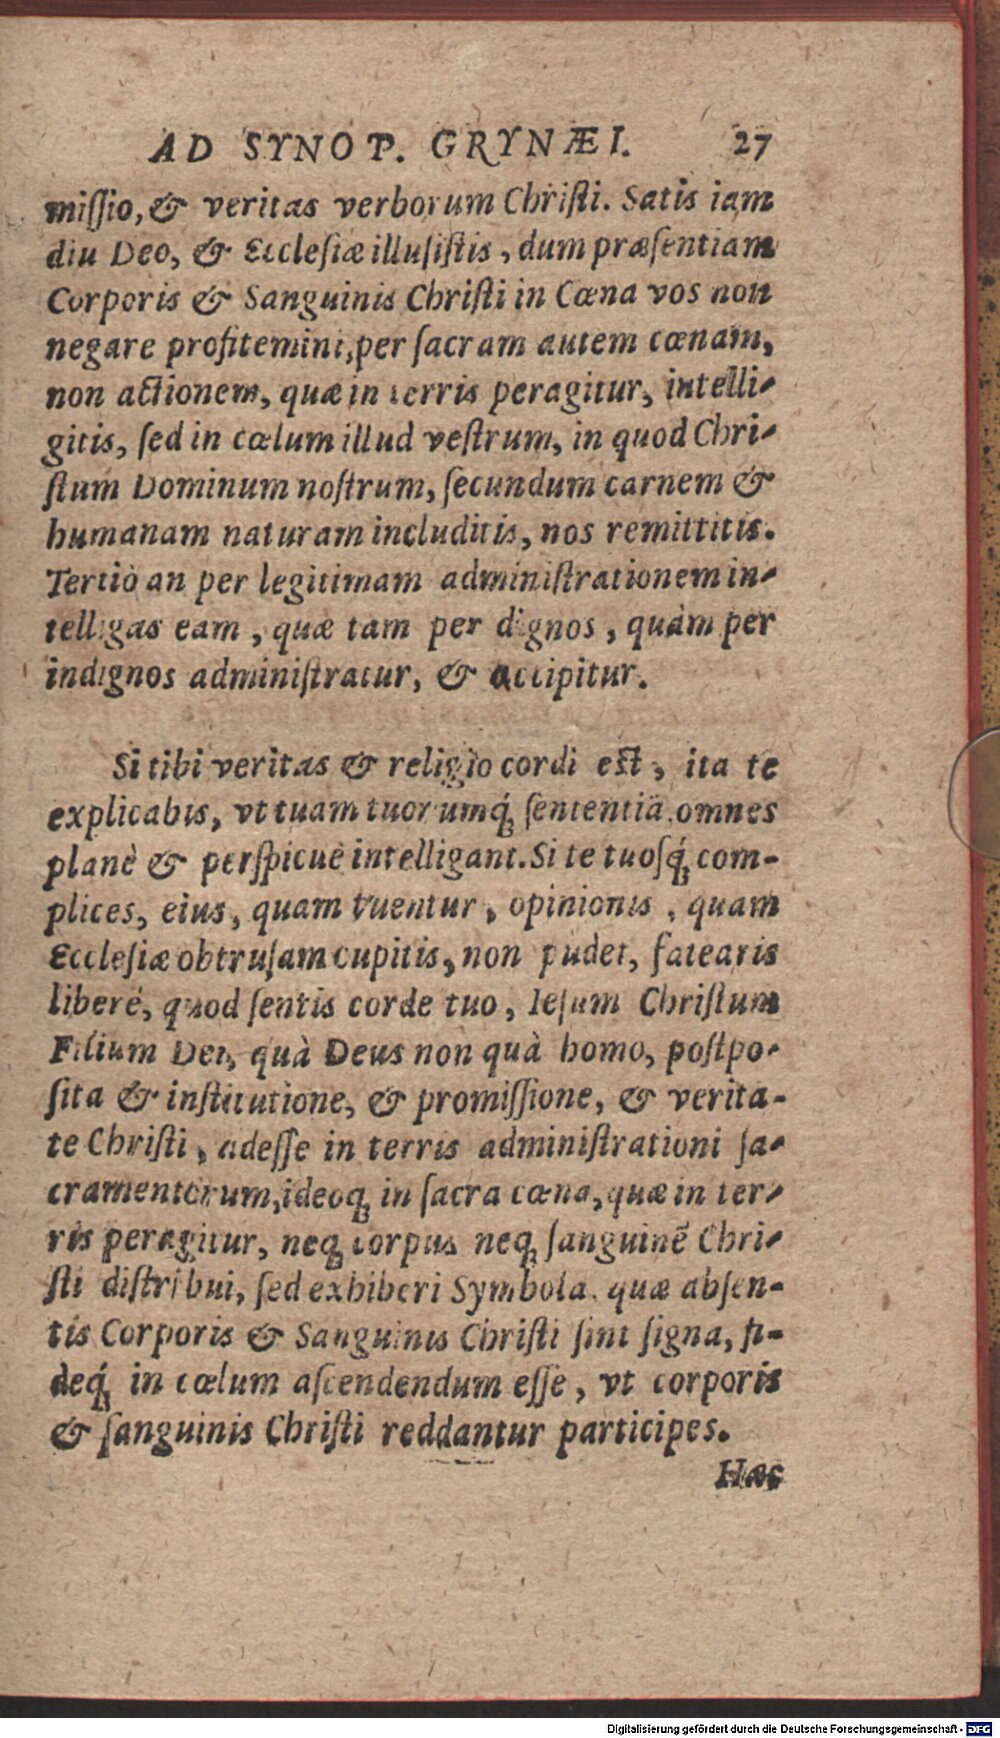 AD SYNOP. GRYNÆI. 27
miſſio, & veritas verborum Chriſti. Satis iam
diu Deo, & Eccleſiæ illuſiſtis, dum præſentiam
Corporis & Sanguinis Chriſti in Cœna vos non
negare profitemini, per ſacram autem cœnam,
non actionem, quæ in terris peragitur, intelli-
gitis, ſed in cœlum illud veſtrum, in quod Chri-
ſtum Dominum noſtrum, ſecundum carnem &
humanam naturam includitis, nos remittitis.
Tertiò an per legitimam adminiſtrationem in-
telligas eam, quæ tam per dignos, quàm per
indignos adminiſtratur, & accipitur.
Si tibi veritas & religio cordi eſt, ita te
explicabis, vt tuam tuorumq́; ſententiã omnes
planè & perſpicuè intelligant. Si te tuoſq́; com-
plices, eius, quam tuentur, opinionis, quam
Eccleſiæ obtruſam cupitis, non pudet, fatearis
liberè, quod ſentis corde tuo, Ieſum Chriſtum
Filium Dei, quà Deus non quà homo, poſtpo-
ſita & inſtitutione, & promiſſione, & verita-
te Chriſti, adeſſe in terris adminiſtrationi ſa-
cramentorum, ideoq; in ſacra cœna, quæ in ter-
ris peragitur, neq; corpus neq; ſanguinẽ Chri-
ſti diſtribui, ſed exhiberi Symbola, quæ abſen-
tis Corporis & Sanguinis Chriſti ſint ſigna, fi-
deq́; in cœlum aſcendendum eſſe, vt corporis
& ſanguinis Chriſti reddantur participes.
Hæc
Digitalisierung gefördert durch die Deutsche Forschungsgemeinschaft - DFG